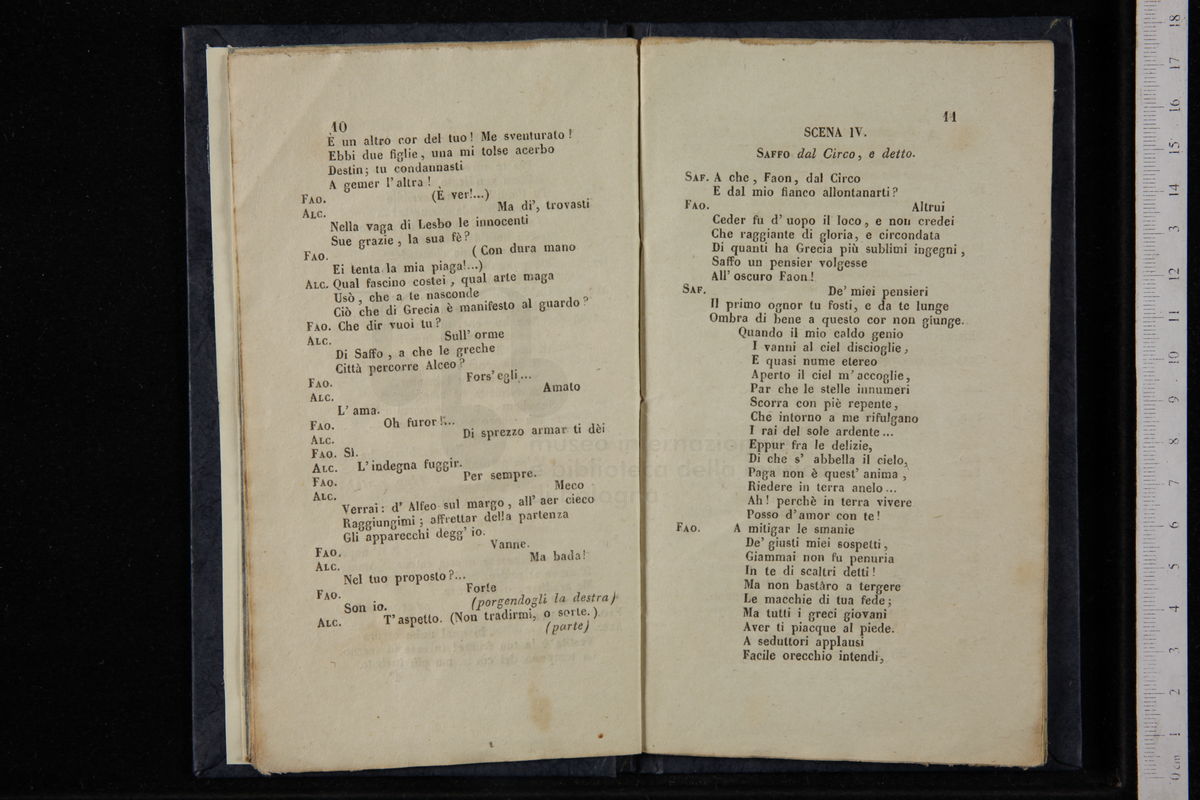 10
È un altro cor del tuo! Me sventurato!
Ebbi due figlie, una mi tolse acerbo
Destin; tu condannasti
A gemer l'altra!
FAO. (È ver!...)
ALC. Ma di', trovasti
Nella vaga di Lesbo le innocenti
Sue grazie, la sua fè?
FAO. (Con dura mano
Ei tenta la mia piaga!...)
ALC. Qual fascino costei, qual arte maga
Usò, che a te nasconde
Ciò che di Grecia è manifesto al guardo?
FAO. Che dir vuoi tu?
ALC. Sull' orme
Di Saffo, a che le greche
Città percorre Alceo?
FAO. Fors' egli...
ALC. Amato
L' ama.
FAO. Oh furor!...
ALC. Di sprezzo armar ti dèi
FAO. Sì.
ALC. L'indegna fuggir.
FAO. Per sempre.
ALC. Meco
Verrai: d' Alfeo sul margo, all' aer cieco
Raggiungimi; affrettar della partenza
Gli apparecchi degg' io.
FAO. Vanne.
ALC. Ma bada!
Nel tuo proposto?...
FAO. Forte
Son io. (porgendogli la destra)
ALC. T'aspetto. (Non tradirmi, o sorte.)
(parte)
11
SCENA IV.
SAFFO dal Circo, e detto.
SAF. A che, Faon, dal Circo
E dal mio fianco allontanarti?
FAO. Altrui
Ceder fu d' uopo il loco, e non credei
Che raggiante di gloria, e circondata
Di quanti ha Grecia più sublimi ingegni,
Saffo un pensier volgesse
All' oscuro Faon!
SAF. De' miei pensieri
Il primo ognor tu fosti, e da te lunge
Ombra di bene a questo cor non giunge.
Quando il mio caldo genio
I vanni al ciel discioglie,
E quasi nume etereo
Aperto il ciel m' accoglie,
Par che le stelle innumeri
Scorra con piè repente,
Che intorno a me rifulgano
I rai del sole ardente...
Eppur fra le delizie,
Di che s' abbella il cielo,
Paga non è quest' anima,
Riedere in terra anelo...
Ah! perchè in terra vivere
Posso d'amor con te!
FAO. A mitigar le smanie
De' giusti miei sospetti,
Giammai non fu penuria
In te di scaltri detti!
Ma non bastàro a tergere
Le macchie di tua fede;
Ma tutti i greci giovani
Aver ti piacque al piede.
A seduttori applausi
Facile orecchio intendi,
museo internazion
e biblioteca della